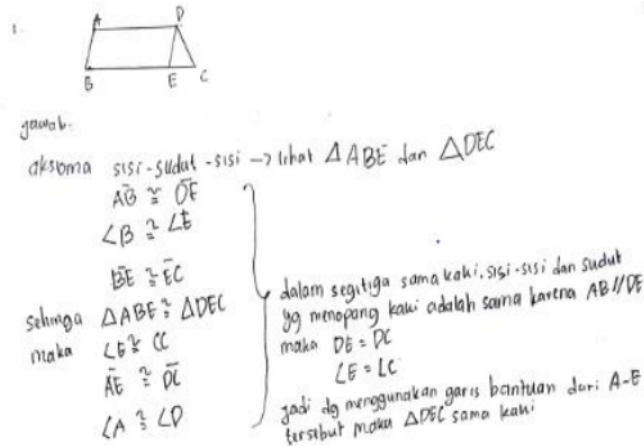 1.
A D
B E C
jawab:
aksioma sisi-sudut-sisi -> lihat △ABE dan △DEC
A̅B̅ ≅ D̅E̅
∠B ≅ ∠E
B̅E̅ ≅ E̅C̅
sehingga △ABE ≅ △DEC
maka ∠E ≅ ∠C
A̅E̅ ≅ D̅C̅
∠A ≅ ∠D
dalam segitiga sama kaki, sisi-sisi dan sudut
yg menopang kaki adalah sama karena AB//DE
maka DE = DC
∠E = ∠C
jadi dg menggunakan garis bantuan dari A-E
tersebut maka △DEC sama kaki